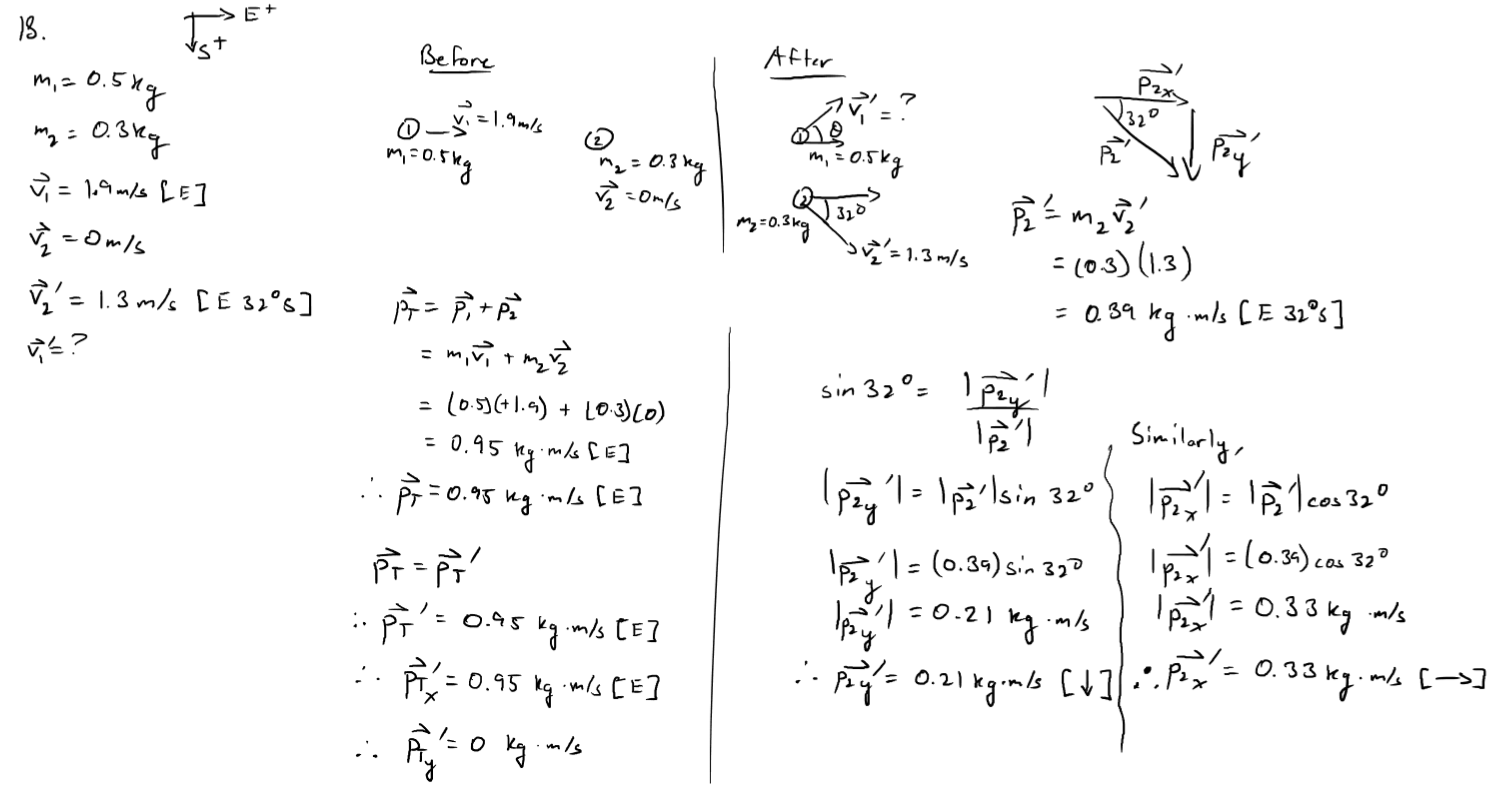 18.
E+
S+
m₁ = 0.5 kg
m₂ = 0.3 kg
v⃗₁ = 1.9 m/s [E]
v⃗₂ = 0 m/s
v⃗₂' = 1.3 m/s [E 32° S]
v⃗₁' = ?
Before
① v⃗₁ = 1.9 m/s
m₁ = 0.5 kg
②
m₂ = 0.3 kg
v⃗₂ = 0 m/s
p⃗T = p⃗₁ + p⃗₂
= m₁v⃗₁ + m₂v⃗₂
= (0.5)(+1.9) + (0.3)(0)
= 0.95 kg·m/s [E]
∴ p⃗T = 0.95 kg·m/s [E]
p⃗T = p⃗T'
∴ p⃗T' = 0.95 kg·m/s [E]
∴ p⃗Tx' = 0.95 kg·m/s [E]
∴ p⃗Ty' = 0 kg·m/s
After
v⃗₁' = ?
① θ
m₁ = 0.5 kg
② 32°
m₂ = 0.3 kg
v⃗₂' = 1.3 m/s
p⃗2x'
32°
p⃗₂'
p⃗2y'
p⃗₂' = m₂v⃗₂'
= (0.3)(1.3)
= 0.39 kg·m/s [E 32° S]
sin 32° = |p⃗2y'| / |p⃗₂'|
|p⃗2y'| = |p⃗₂'| sin 32°
|p⃗2y'| = (0.39) sin 32°
|p⃗2y'| = 0.21 kg·m/s
∴ p⃗2y' = 0.21 kg·m/s [↓]
Similarly,
|p⃗2x'| = |p⃗₂'| cos 32°
|p⃗2x'| = (0.39) cos 32°
|p⃗2x'| = 0.33 kg·m/s
∴ p⃗2x' = 0.33 kg·m/s [→]